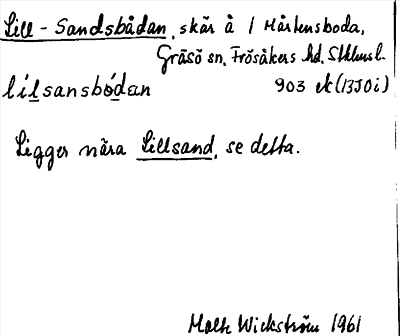 Lill-Sandsbådan, skär å 1 Mårtensboda,
Gräsö sn, Frösåkers hd, Sthlms l.
lílsansbódan 903 ek (13J0i)
Ligger nära Lillsand, se detta.
Malte Wickström 1961